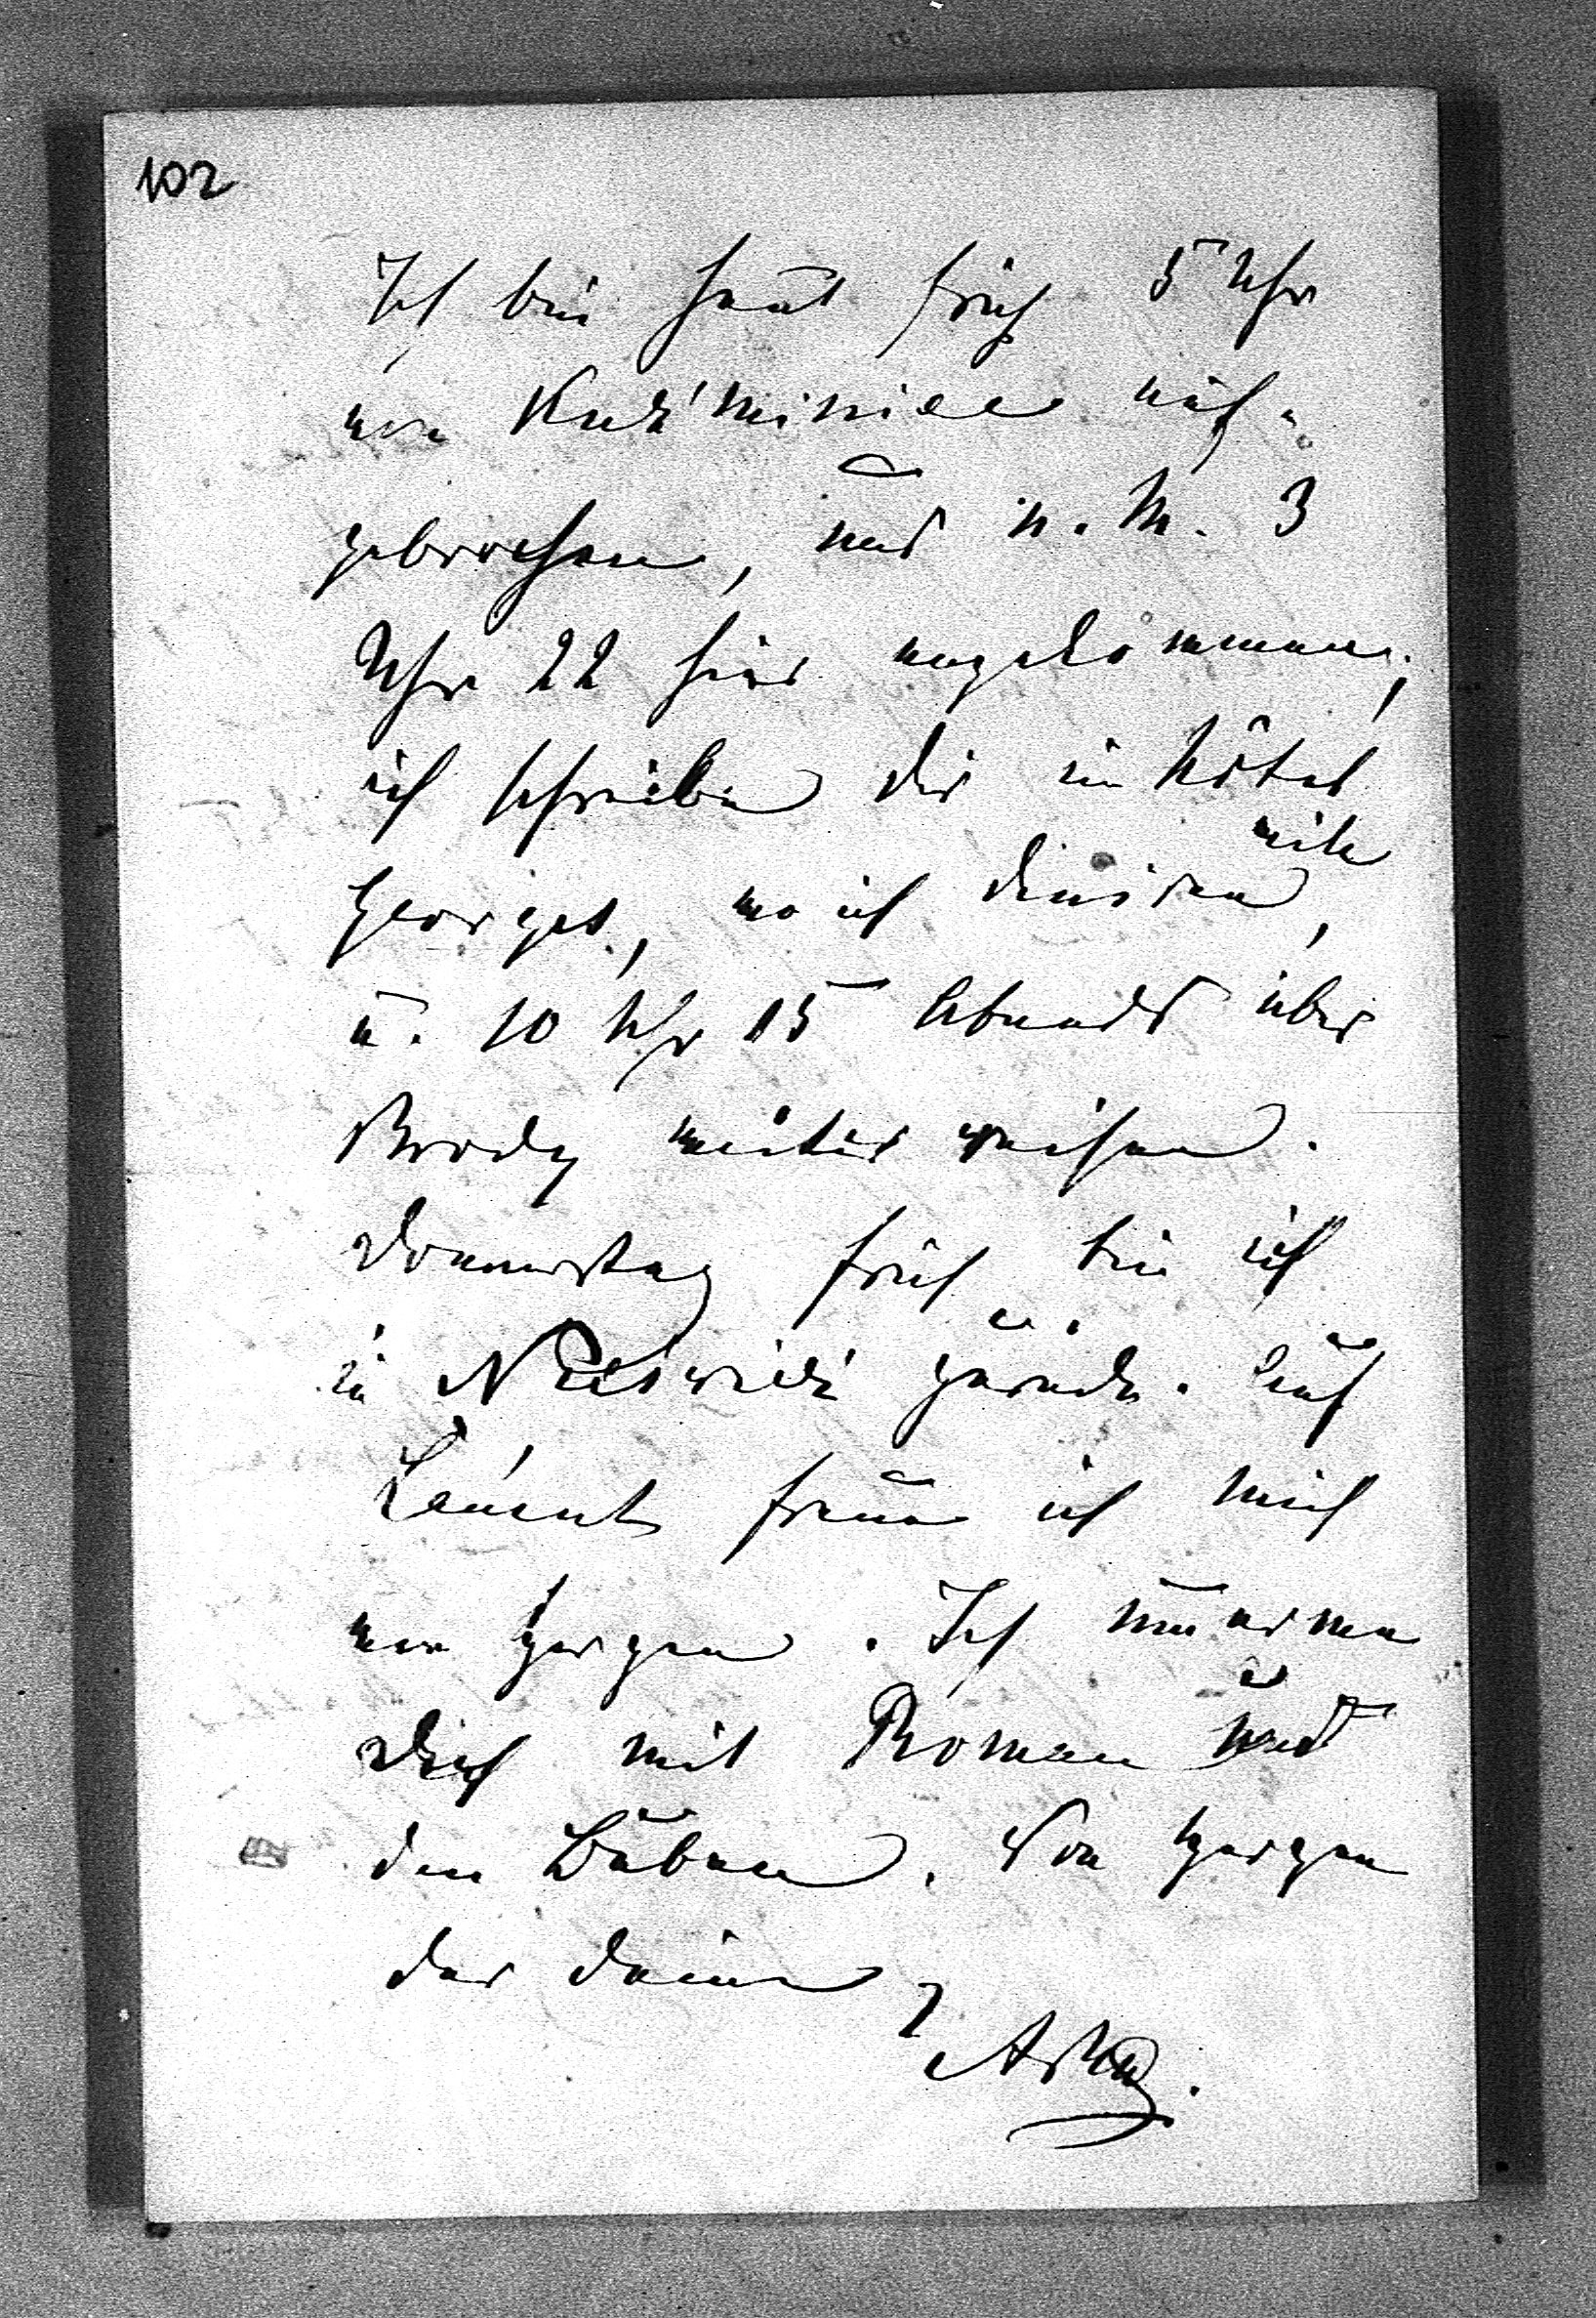 102
Ich bin heut früh 5 Uhr
von Kuźminiec auf-
gebrochen, und n. M. 3
Uhr 22 hier angekommen;
ich schreibe dir im Hôtel
Georges, wo ich diniren, will
u. 10 Uhr 15 Abends über
Brody weiter reisen.
Donnerstag früh bin ich
in Nieświeź zurück. Auf
Łańcut freue ich mich
von Herzen. Ich umarme
Dich mit Roman und
den Buben. Von Herzen
der deine